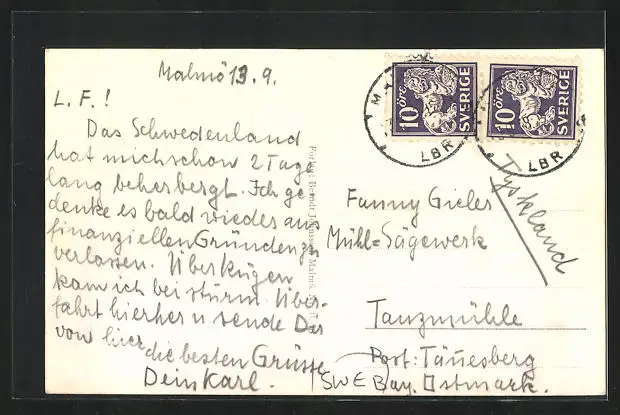 Malmö 13. 9.
L. F. !
Das Schwedenland
hat mich schon 2 Tage
lang beherbergt. Ich ge-
denke es bald wieder aus
finanziellen Gründen zu
verlassen. Über Rügen
kam ich bei sturm. Über-
fahrt hierher u sende Dir
von hier die besten Grüsse
Dein Karl.
10 ÖRE SVERIGE
10 ÖRE SVERIGE
LBR
LBR
Tyskland
Fanny Gieler
Mühl= Sägewerk
Tanzmühle
Post: Tännesberg
Bay. Ostmark.